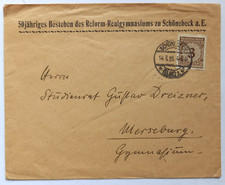 50jähriges Bestehen des Reform-Realgymnasiums zu Schönebeck a. E.
Herrn
Studienrat Gustav Dreizner,
Merseburg.
Gymnasium.